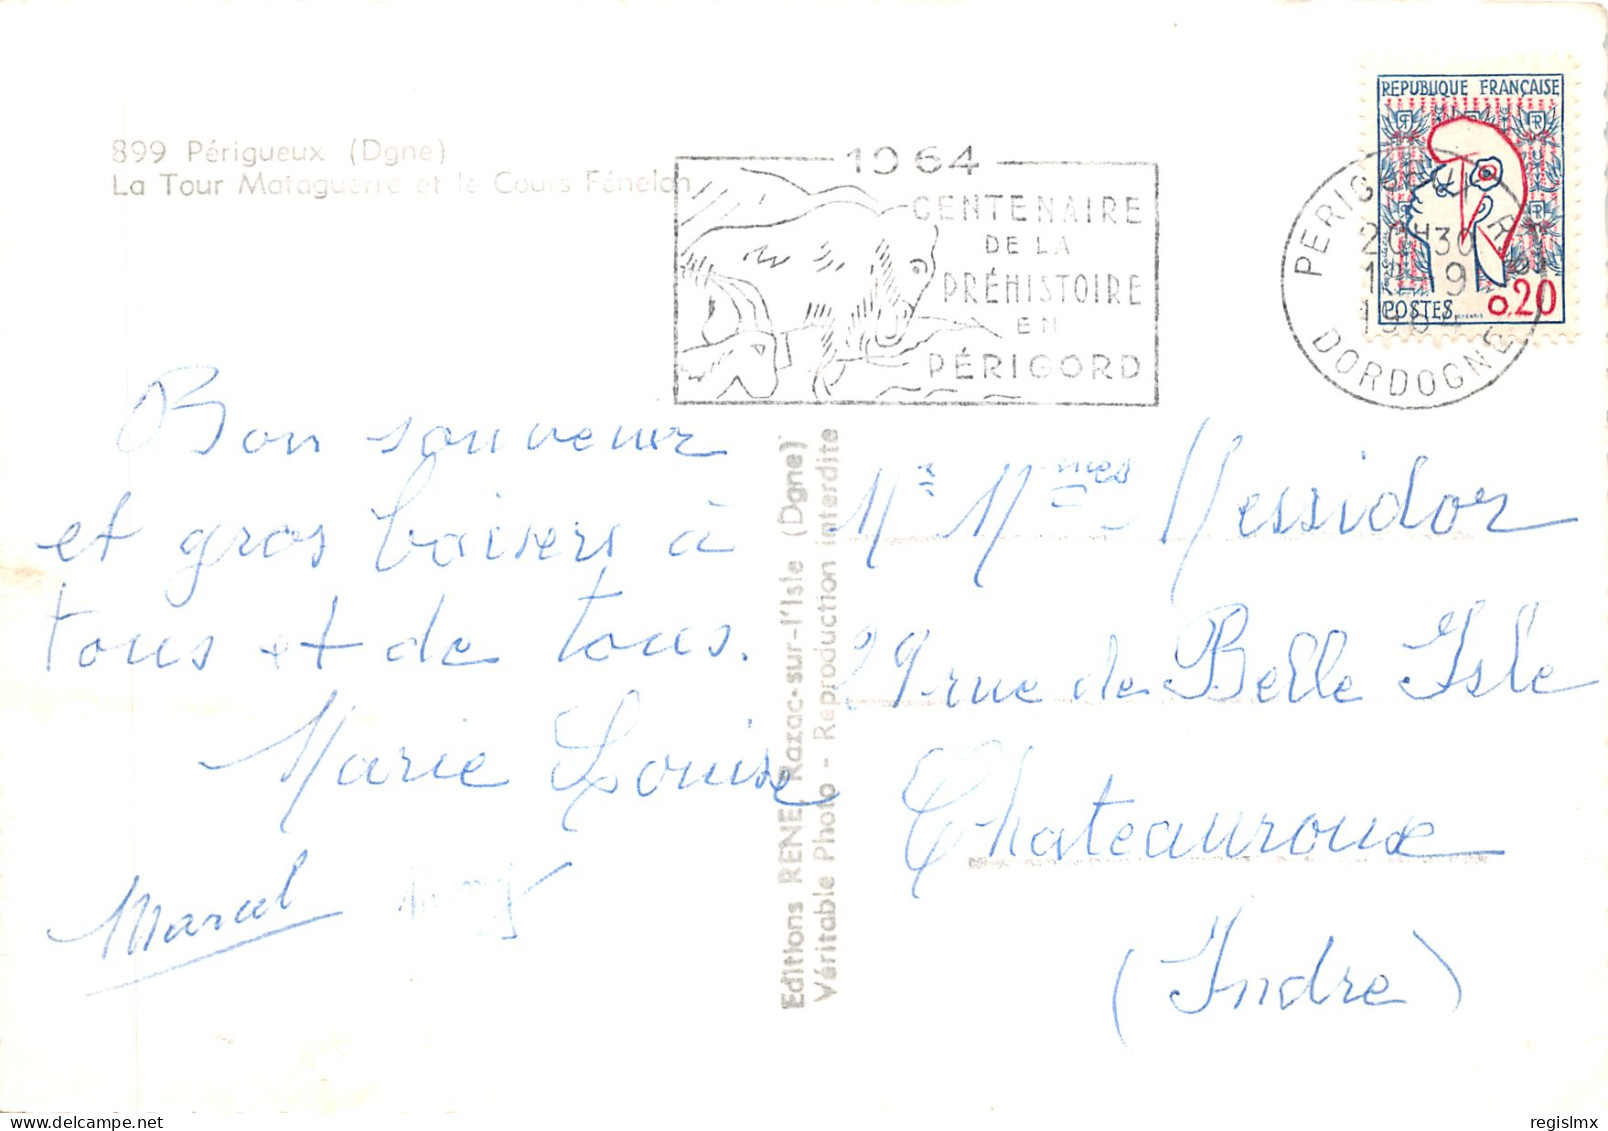 899 Périgueux (Dgne)
La Tour Mataguerre et le Cours Fénelon
1964
CENTENAIRE
DE LA
PRÉHISTOIRE
EN
PÉRIGORD
REPUBLIQUE FRANÇAISE
POSTES
0,20
20H30
12-9
1964
DORDOGNE
Bon souvenir
et gros baisers à
tous et de tous.
Marie Louise
Marcel
Editions RENE, Razac-sur-l'Isle (Dgne)
Véritable Photo - Reproduction interdite
Mr Mmes Messidor
29 rue de Belle Isle
Chateauroux
(Indre)
regislmx